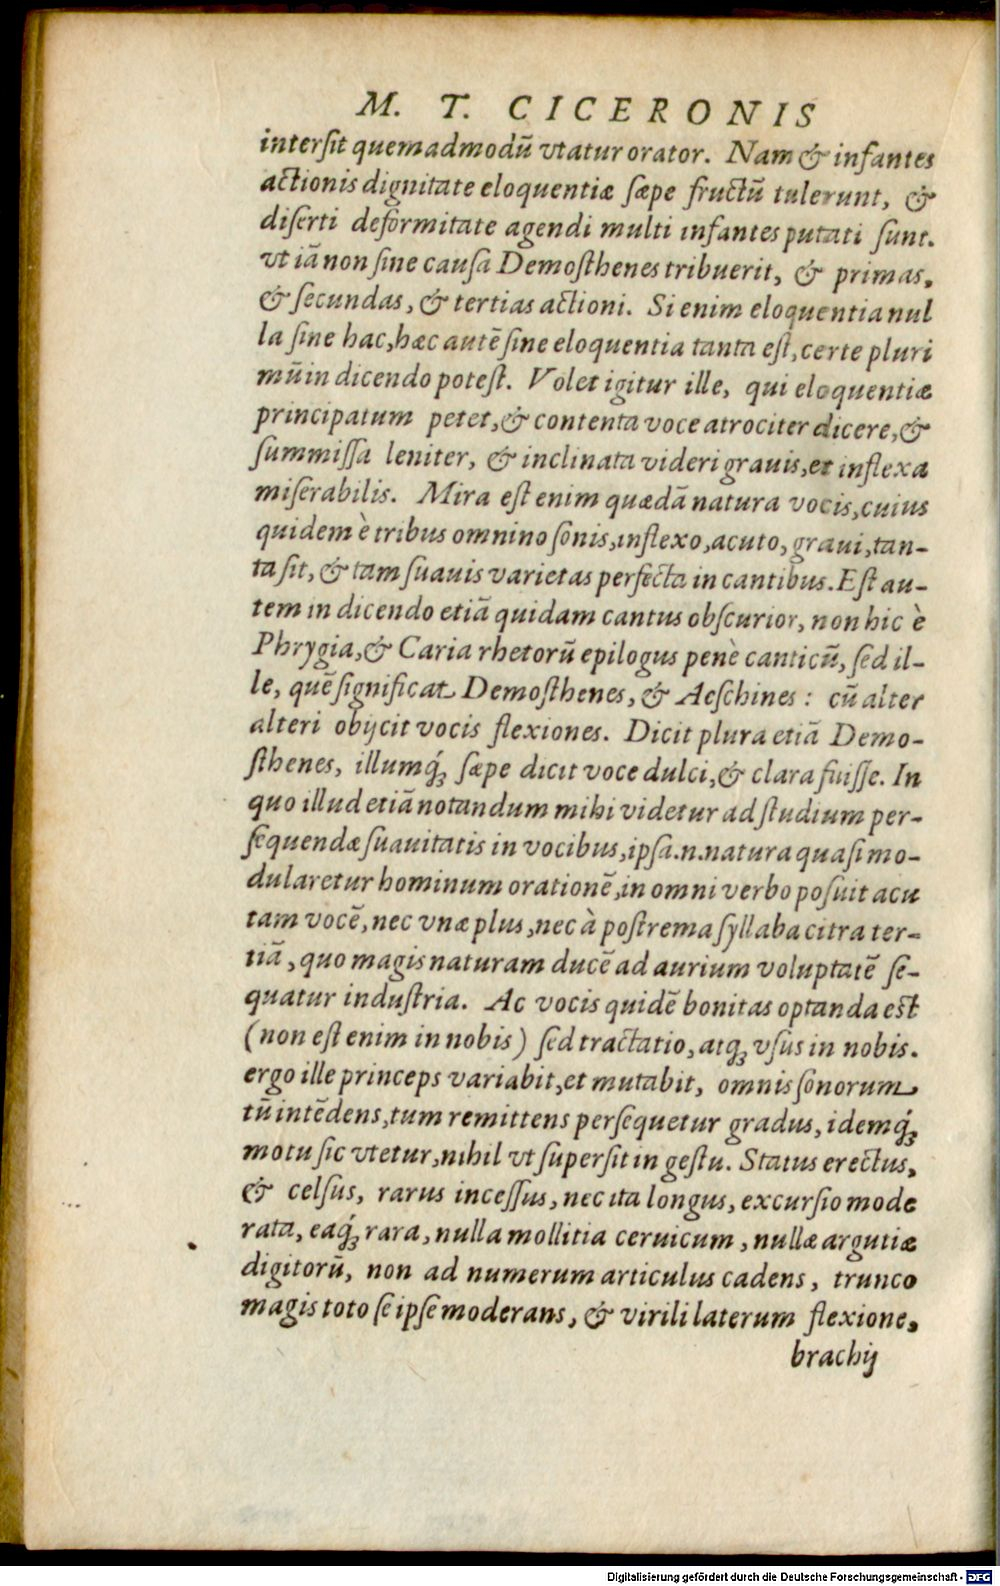 M. T. CICERONIS
interſit quemadmodū vtatur orator. Nam & infantes
actionis dignitate eloquentiæ ſæpe fructū tulerunt, &
diſerti deformitate agendi multi infantes putati ſunt.
vt iā non ſine cauſa Demoſthenes tribuerit, & primas,
& ſecundas, & tertias actioni. Si enim eloquentia nul
la ſine hac, hæc autē ſine eloquentia tanta eſt, certe pluri
mūin dicendo poteſt. Volet igitur ille, qui eloquentiæ
principatum petet, & contenta voce atrociter dicere, &
ſummiſſa leniter, & inclinata videri grauis, et inflexa
miſerabilis. Mira eſt enim quædā natura vocis, cuius
quidem è tribus omnino ſonis, inflexo, acuto, graui, tan-
ta ſit, & tam ſuauis varietas perfecta in cantibus. Eſt au-
tem in dicendo etiā quidam cantus obſcurior, non hic è
Phrygia, & Caria rhetorū epilogus penè canticū, ſed il-
le, quē ſignificat Demoſthenes, & Aeſchines : cū alter
alteri obijcit vocis flexiones. Dicit plura etiā Demo-
ſthenes, illumq́; ſæpe dicit voce dulci, & clara fuiſſe. In
quo illud etiā notandum mihi videtur ad ſtudium per-
ſequendæ ſuauitatis in vocibus, ipſa.n.natura quaſi mo-
dularetur hominum orationē, in omni verbo poſuit acu
tam vocē, nec vnæ plus, nec à poſtrema ſyllaba citra ter-
tiā, quo magis naturam ducē ad aurium voluptatē ſe-
quatur induſtria. Ac vocis quidē bonitas optanda eſt
(non eſt enim in nobis) ſed tractatio, atq; vſus in nobis.
ergo ille princeps variabit, et mutabit, omnis ſonorum
tū intēdens, tum remittens perſequetur gradus, idemq́;
motu ſic vtetur, nihil vt ſuperſit in geſtu. Status erectus,
& celſus, rarus inceſſus, nec ita longus, excurſio mode
rata, eaq́; rara, nulla mollitia ceruicum, nullæ argutiæ
digitorū, non ad numerum articulus cadens, trunco
magis toto ſe ipſe moderans, & virili laterum flexione,
brachij
Digitalisierung gefördert durch die Deutsche Forschungsgemeinschaft - DFG